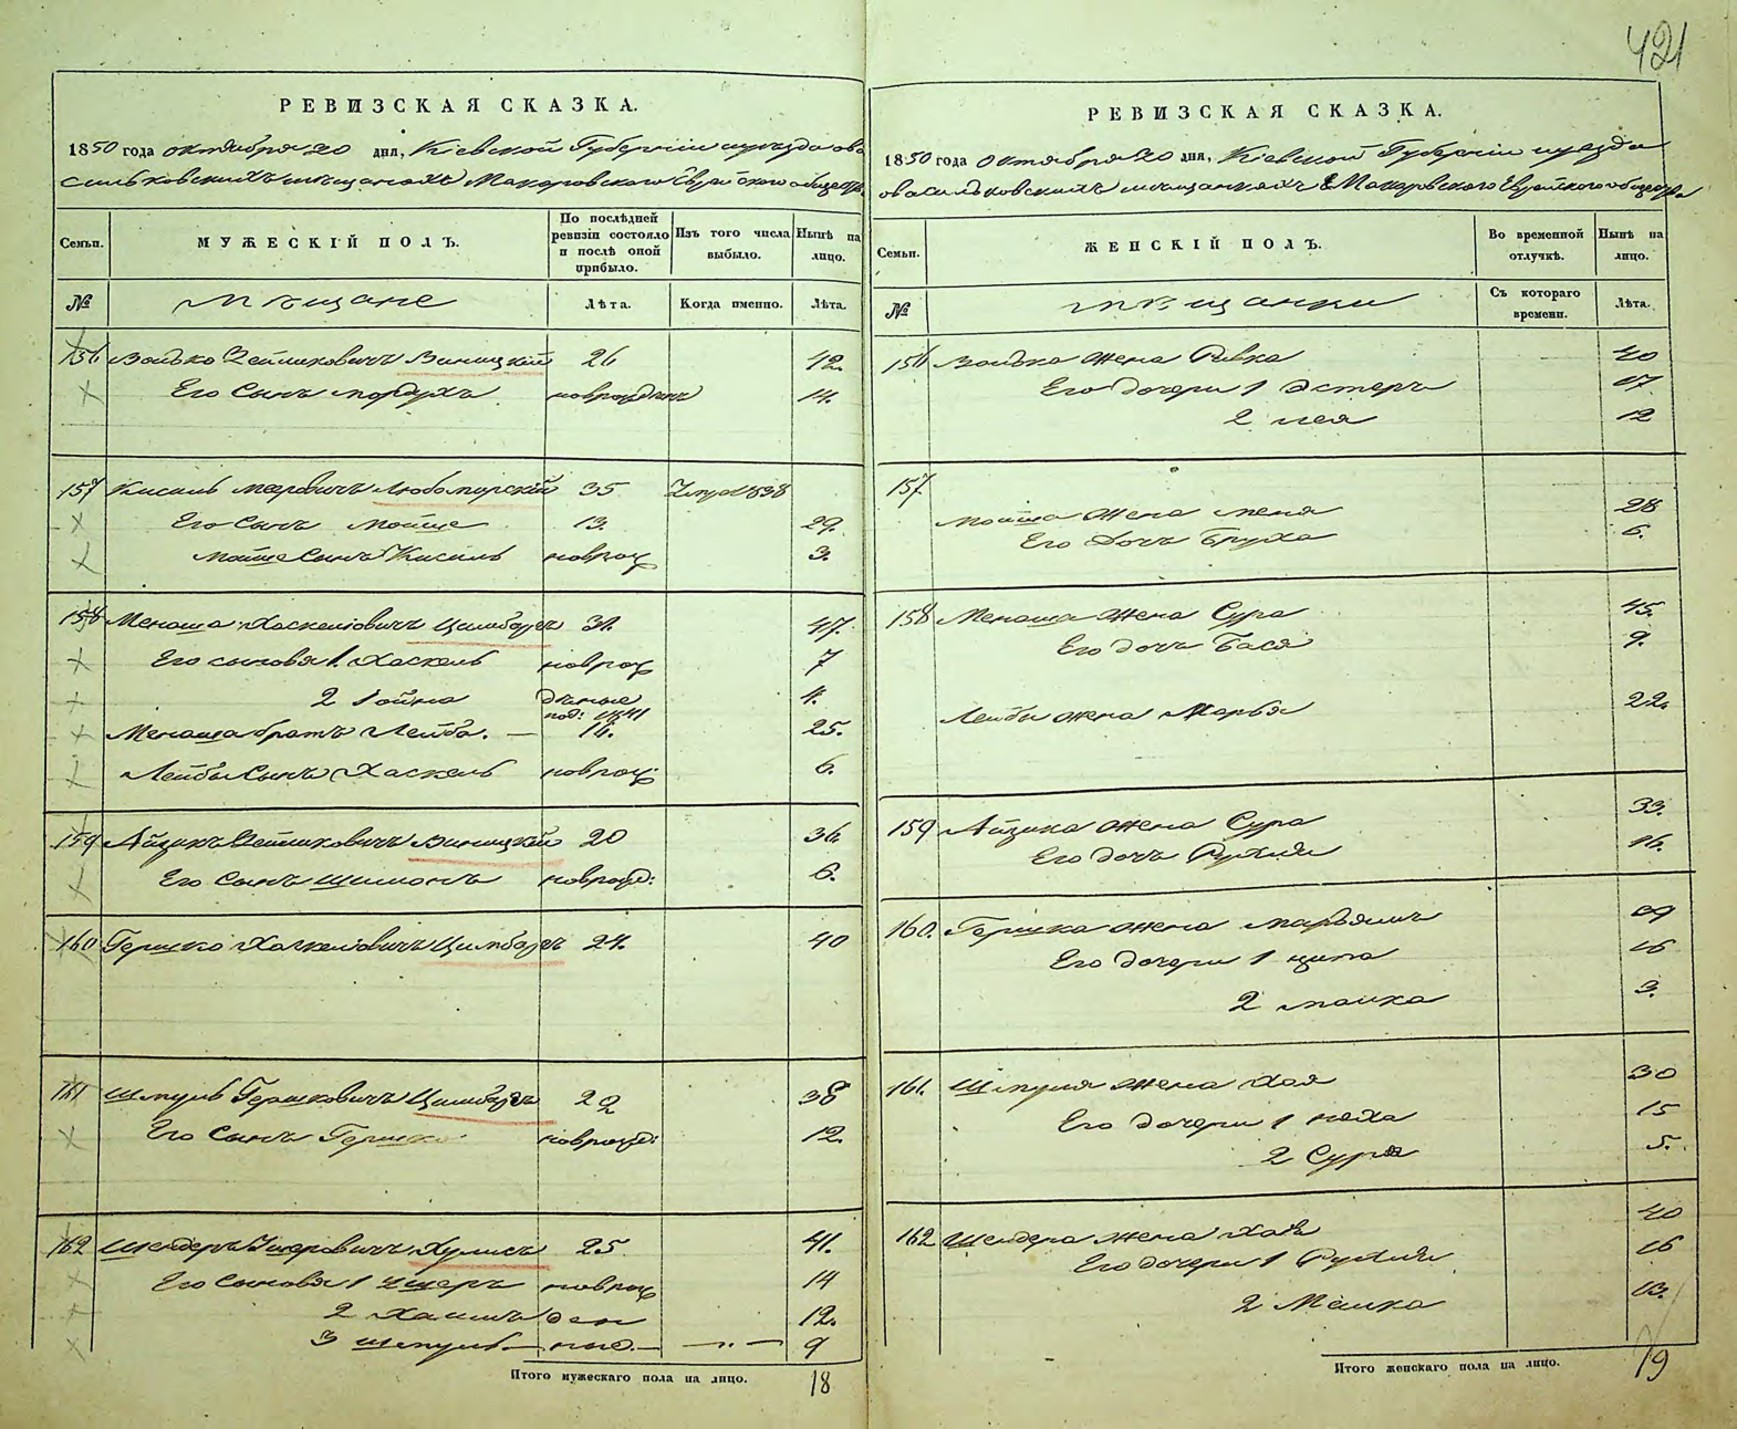 421
РЕВИЗСКАЯ СКАЗКА.
1850 года октября 20 дня, Кіевской Губерніи уѣзда ова
сильковскихъ мѣщанахъ Макаровского Еврейского общества
Семьи.
МУЖЕСКІЙ ПОЛЪ.
По послѣдней ревизіи состояло и послѣ оной прибыло.
Изъ того числа выбыло.
Нынѣ на лицо.
№
Мѣщане
Лѣта.
Когда именно.
Лѣта.
156 Волько Зейликовичъ Виницкій 26 42.
Его Сынъ Мордухъ новрожденъ 14.
157 Кисиль Мееровичъ Любомирскій 35 Умре 1838
Его Сынъ Мойше 13. 29.
Мойше Сынъ Кисиль новрож 3.
158 Менаша Хаскелювичъ Цимбалъ 31. 47.
Его сыновя 1. Хаскель новрож 7
2 Іойна денные 4.
под: 1841
Менаша братъ Лейба. — 16. 25.
Лейбы Сынъ Хаскель новрож: 6.
159 Айзикъ Зейликовичъ Виницкій 20 36.
Его Сынъ Шимонъ новрожд: 6.
160 Гершко Хаскелювичъ Цимбалъ 24. 40
161 Шмуль Гершковичъ Цимбалъ 22 38
Его Сынъ Гершко новрожд: 12.
162 Шендеръ Ушеровичъ 25 41.
Его Сыновя 1 Ушеръ новрож 14
2 Хаимъ ден 12.
3 Шмуль — ные. — — „ — 9
Итого мужескаго пола на лицо. 18
РЕВИЗСКАЯ СКАЗКА.
1850 года Октября 20 дня, Кіевской Губерніи уезда
овасильковскихъ мѣщанкахъ Макаровского Еврейского общества
Семьи.
ЖЕНСКІЙ ПОЛЪ.
Во временной отлучкѣ.
Нынѣ на лицо.
№
Мѣщанки
Съ котораго времени.
Лѣта.
156 Волька жена Ривка 40
Его дочери 1 Эстеръ 17
2 Лея 12
157.
Мойша жена 28
Его Дочь Бруха 6.
158 Менаша жена Сура 45.
Его дочь Бася 9.
Лейбы жена Марья 22.
159 Айзика жена Сура 33.
Его дочь Рухля 16.
160. Гершка жена Марьямъ 39
Его дочери 1 Ципа 16
2 Малка 3.
161. Шмуля жена Хая 30
Его дочери 1 Неха 15
2 Сура 5.
162 Шендера жена Хая 40
Его дочери 1 Рухля 16
2 Малка 13.
Итого женскаго пола на лицо. 19